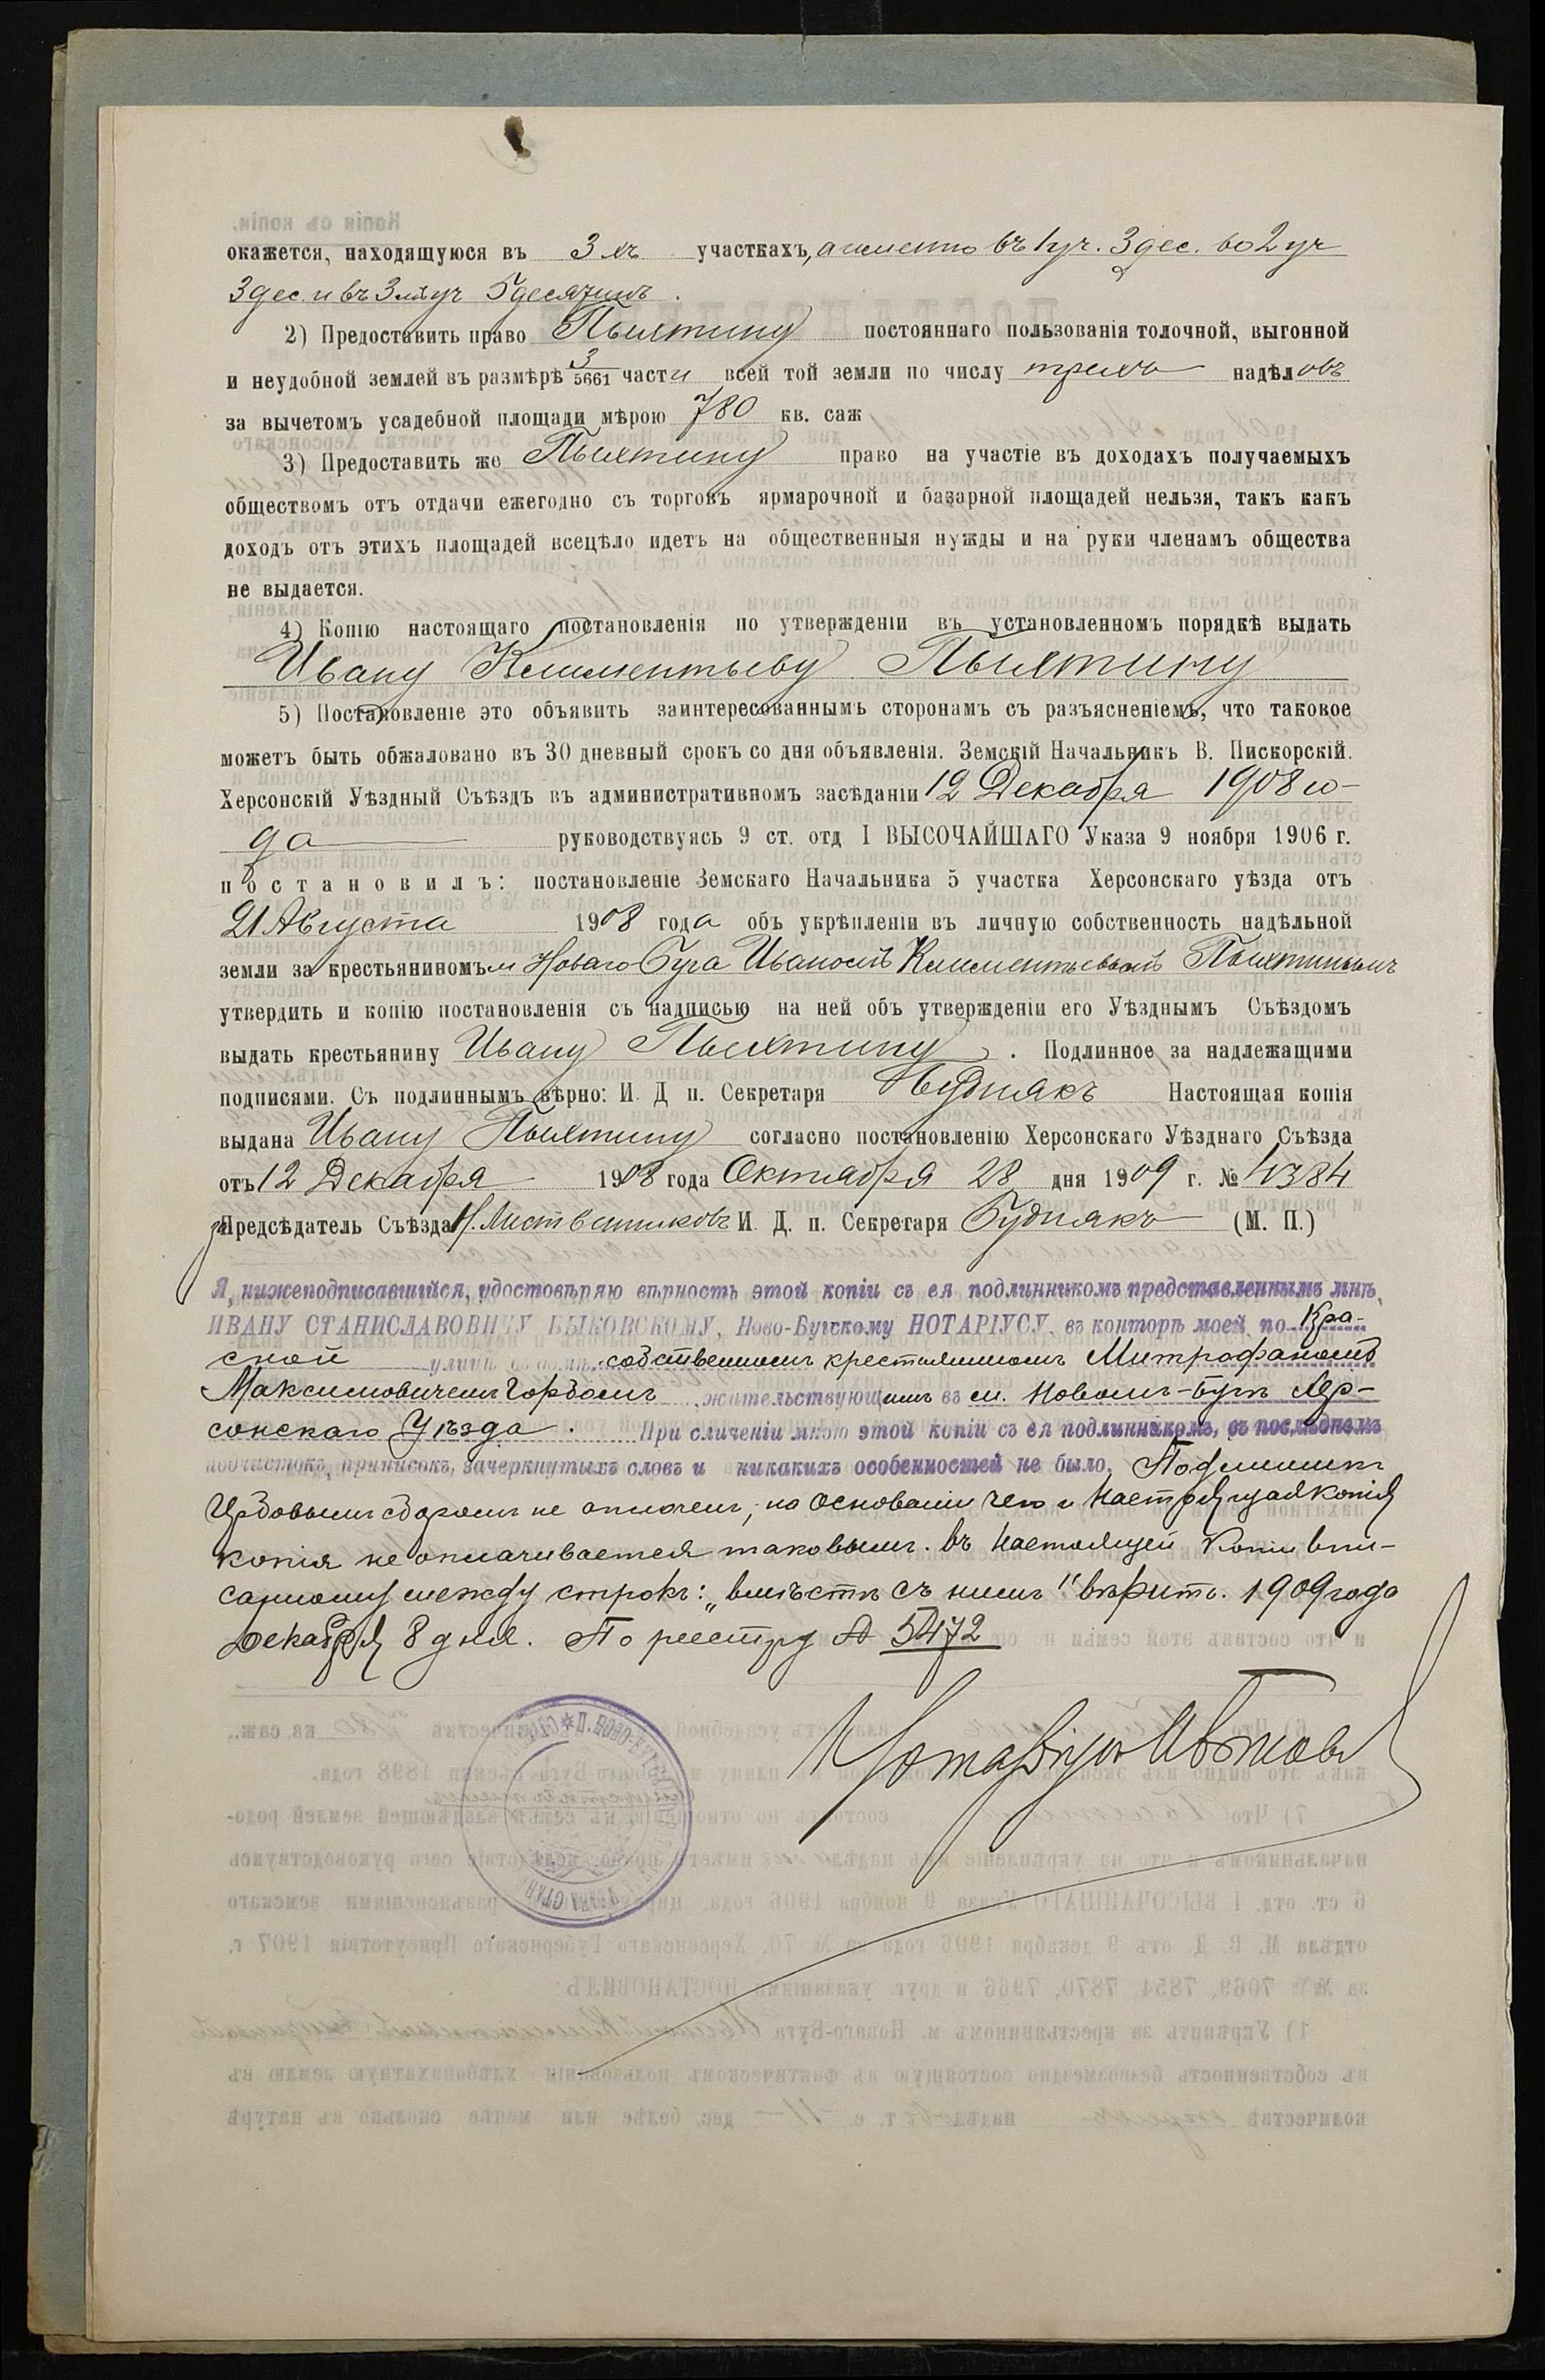 окажется, находящуюся въ 3хъ участкахъ, а именно въ 1 уч. 3 дес. во 2 уч
3 дес. и въ 3мъ уч 5 десятинъ.
2) Предоставить право Пыхтину постояннаго пользованія толочной, выгонной
и неудобной землей въ размѣрѣ 3/5661 части всей той земли по числу трехъ надѣловъ
за вычетомъ усадебной площади мѣрою 780 кв. саж
3) Предоставить же Пыхтину право на участіе въ доходахъ получаемыхъ
обществомъ отъ отдачи ежегодно съ торговъ ярмарочной и базарной площадей нельзя, такъ какъ
доходъ отъ этихъ площадей всецѣло идетъ на общественныя нужды и на руки членамъ общества
не выдается.
4) Копію настоящаго постановленія по утвержденіи въ установленномъ порядкѣ выдать
Ивану Климентьеву Пыхтину
5) Постановленіе это объявить заинтересованнымъ сторонамъ съ разъясненіемъ, что таковое
можетъ быть обжаловано въ 30 дневный срокъ со дня объявленія. Земскій Начальникъ В. Пискорскій.
Херсонскій Уѣздный Съѣздъ въ административномъ засѣданіи 12 Декабря 1908 го-
да руководствуясь 9 ст. отд I ВЫСОЧАЙШАГО Указа 9 ноября 1906 г.
постановилъ: постановленіе Земскаго Начальника 5 участка Херсонскаго уѣзда отъ
21 Августа 1908 года объ укрѣпленіи въ личную собственность надѣльной
земли за крестьяниномъ м Новаго Буга Иваномъ Климентьевымъ Пыхтинымъ
утвердить и копію постановленія съ надписью на ней объ утвержденіи его Уѣзднымъ Съѣздомъ
выдать крестьянину Ивану Пыхтину. Подлинное за надлежащими
подписями. Съ подлиннымъ вѣрно: И. Д п. Секретаря Будникъ Настоящая копія
выдана Ивану Пыхтину согласно постановленію Херсонскаго Уѣзднаго Съѣзда
отъ 12 Декабря 1908 года Октября 28 дня 1909 г. № 4384
Предсѣдатель Съѣзда Н. Листвениковъ И. Д. п. Секретаря Будникъ (М. П.)
Я, нижеподписавшійся, удостовѣряю вѣрность этой копіи съ ея подлинникомъ представленнымъ мнѣ,
ИВАНУ СТАНИСЛАВОВИЧУ БЫКОВСКОМУ, Ново-Бугскому НОТАРІУСУ, въ конторѣ моей, по Кра-
сной улицѣ собственномъ крестьяниномъ Митрофаномъ
Максимовичемъ Горбомъ, жительствующимъ въ м. Новомъ-Бугѣ Хер-
сонскаго Уѣзда. При сличеніи мною этой копіи съ ея подлинникомъ, въ послѣднемъ
подчистокъ, приписокъ, зачеркнутыхъ словъ и никакихъ особенностей не было. Подлинникъ
гербовымъ сборомъ не оплоченъ, на основаніи чего и настоящая копія
копія не оплачивается таковымъ. Въ настоящей копіи впи-
санному между строкъ: "вмѣстѣ съ нимъ" вѣрить. 1909 года
Декабря 8 дня. По реестру № 5472
Нотаріусъ